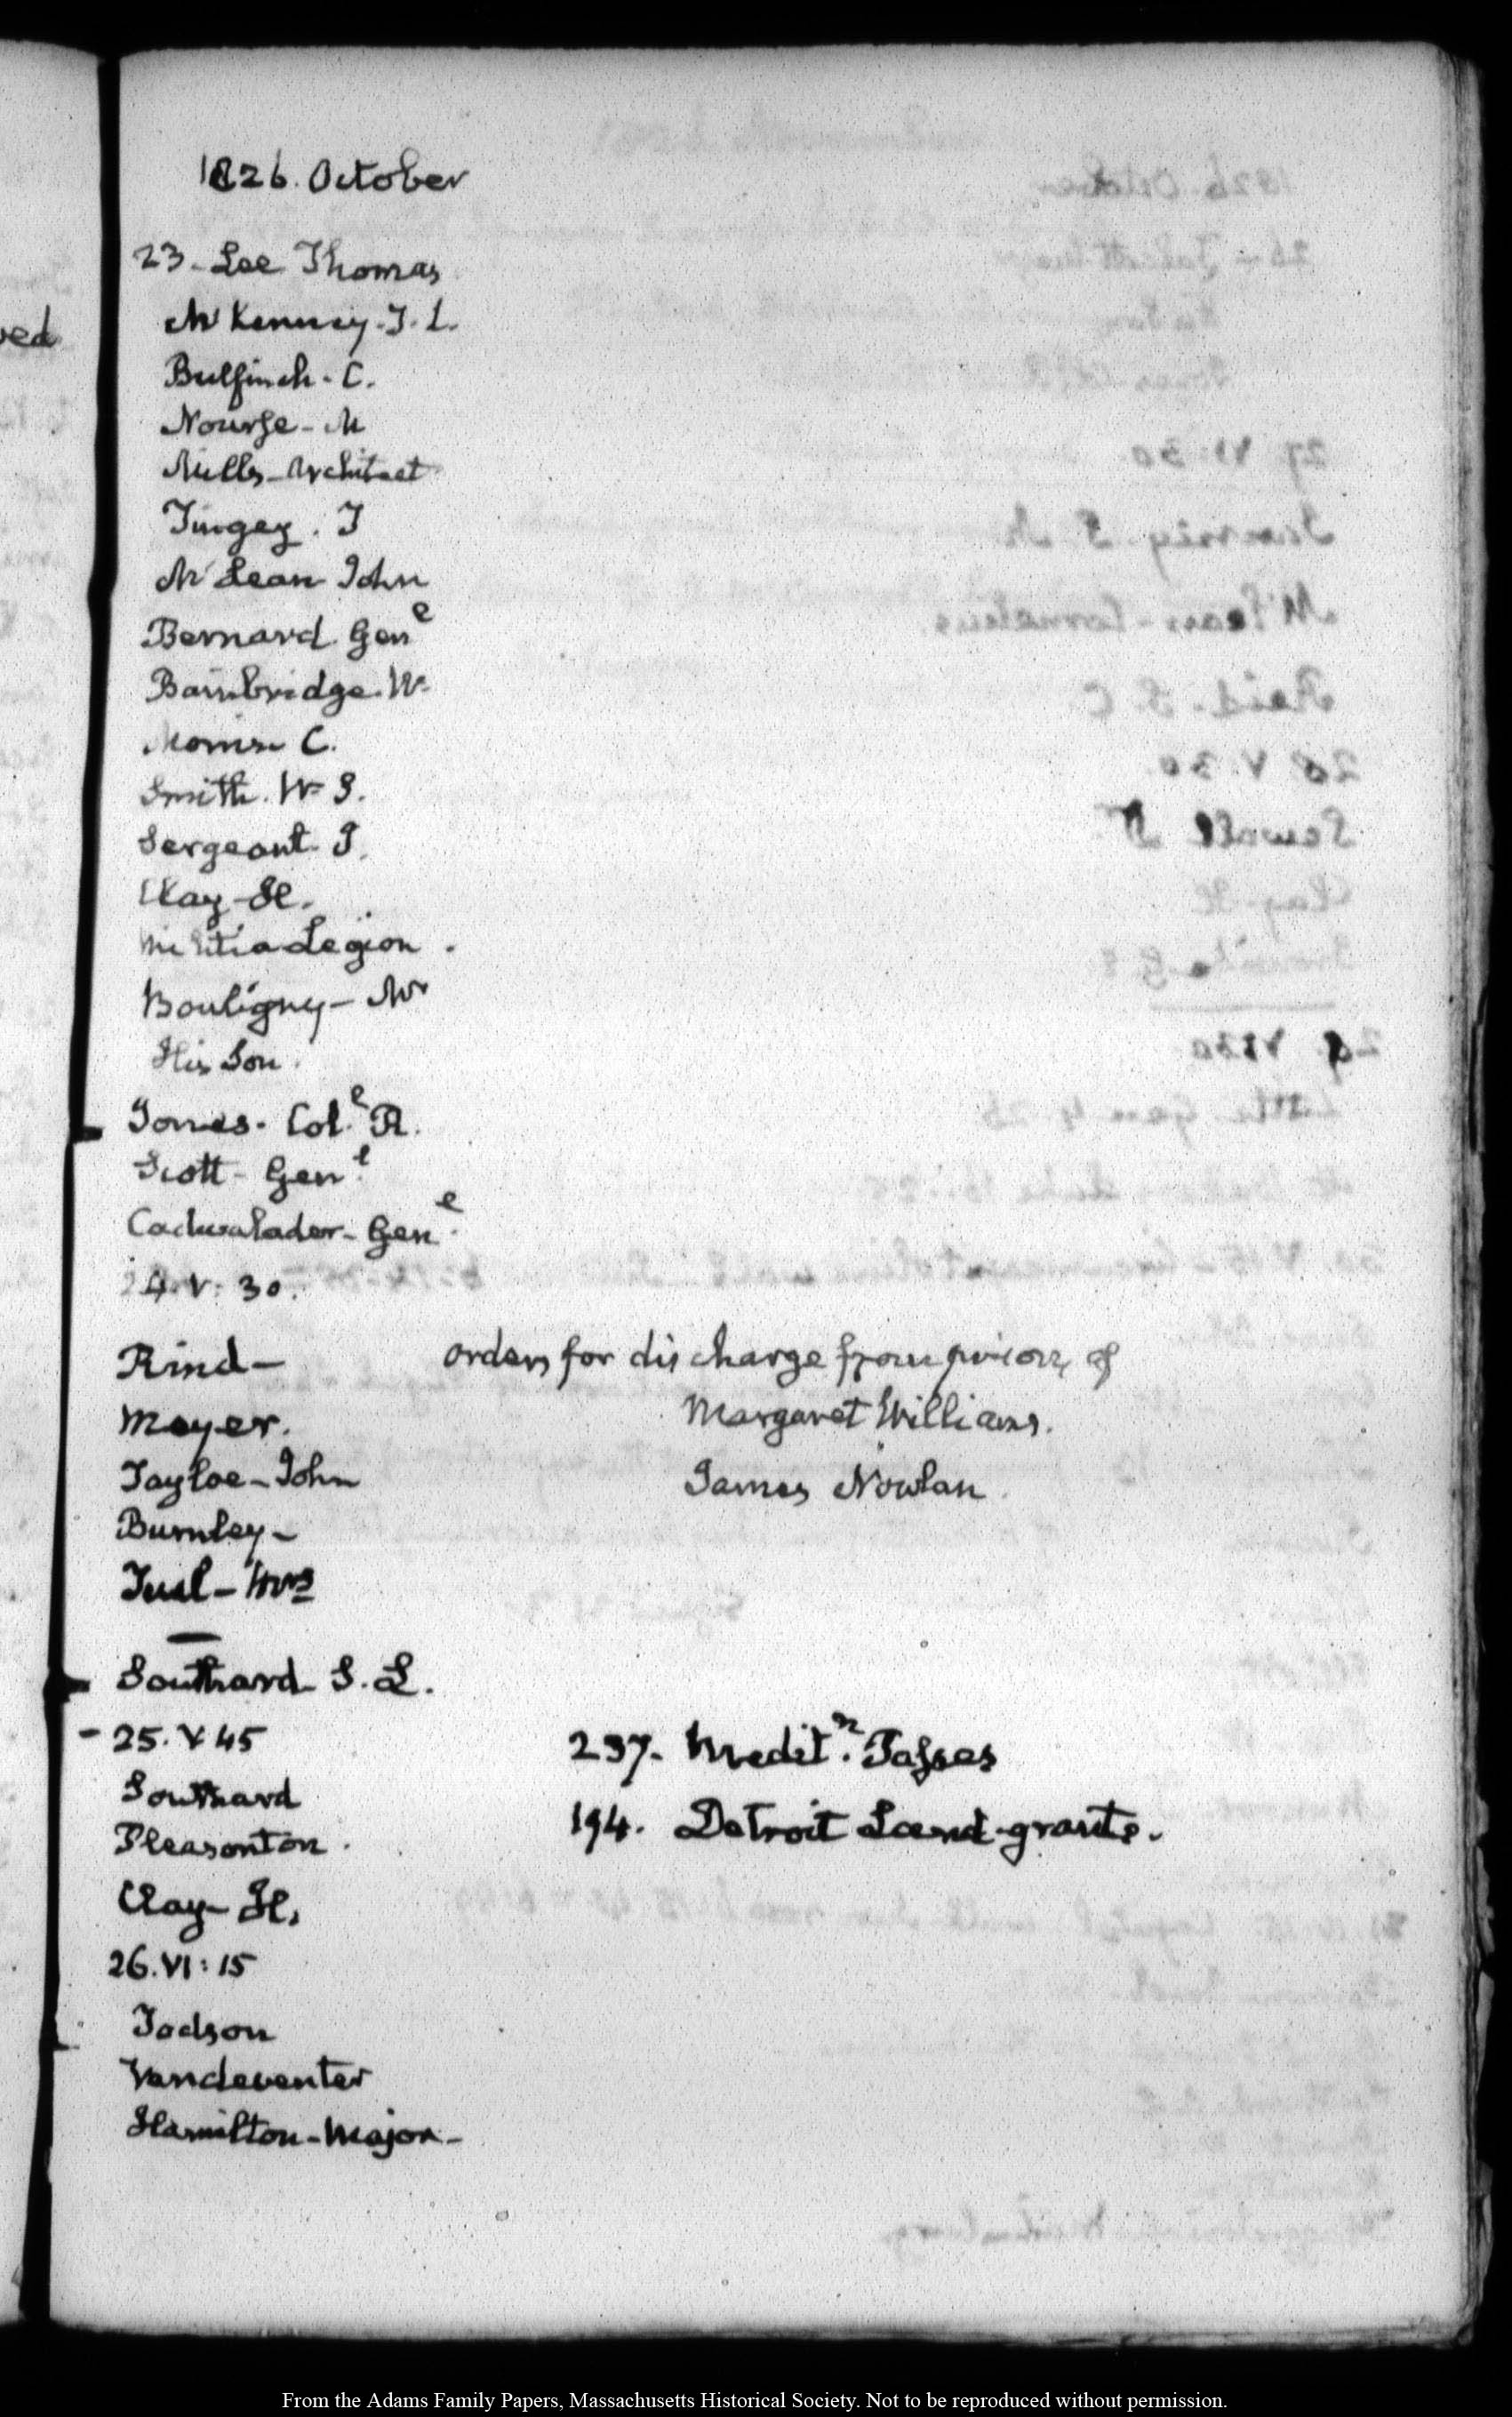 1826. October
23. Lee Thomas
McKenney. T. L.
Bulfinch. C.
Nourse. M
Mills. Architect
Tingey. T
McLean John
Bernard. Genl
Bainbridge. W.
Morris C.
Smith. W. S.
Sergeant. J.
Clay. H.
Militia Legion.
Bouligny. Mr
His Son.
Jones. Coll. R.
Scott. Genl
Cadwalader. Genl
24. V: 30.
Rind— orders for discharge from prison, of
Moyer. Margaret Williams.
Tayloe. John James Nowlan
Burnley—
Tuel—Mrs
Southard. S. L.
25. V 45 237. Meditn. Tasses
Southard 194. Detroit Land-grants.
Pleasonton.
Clay. H.
26. VI: 15
Vandeventer
Hamilton. Major.
ved
From the Adams Family Papers, Massachusetts Historical Society. Not to be reproduced without permission.